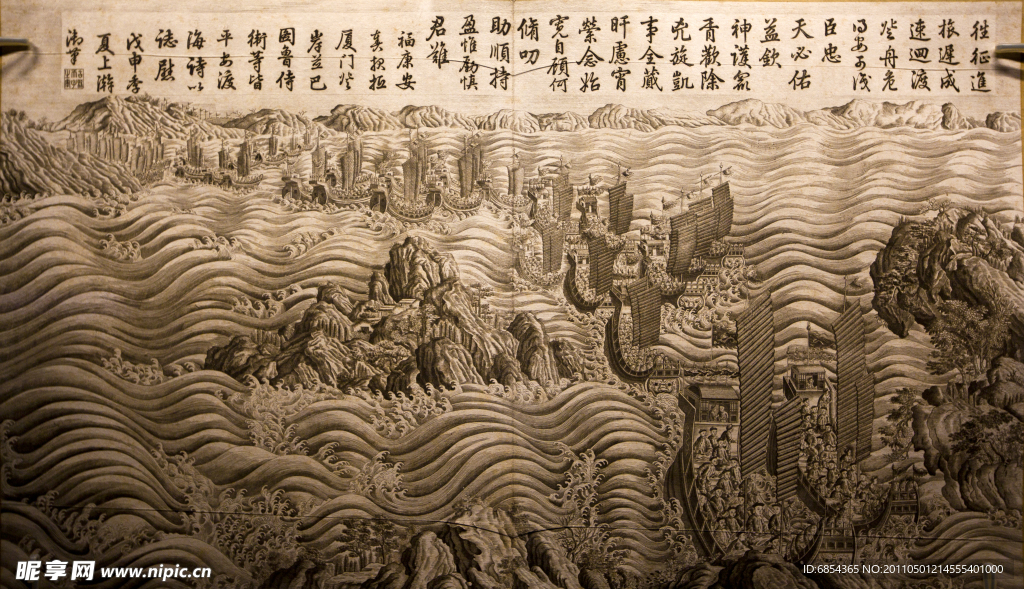 徃征進
旅遲成
速迴渡
登舟危
安
臣忠
天必佑
益欽
神護
胥歡除
兇旋凱
事全蕆
旰慮宵
縈念始
寬自顧何
脩叨
助順持
盈惟勵慎
君難
福康安
奏报
厦门登
岸並巴
圖魯侍
衛等皆
平安渡
海詩以
誌慰
戊申季
夏上澣
御筆
昵享网 www.nipic.cn
ID:6854365 NO:20110501214555401000